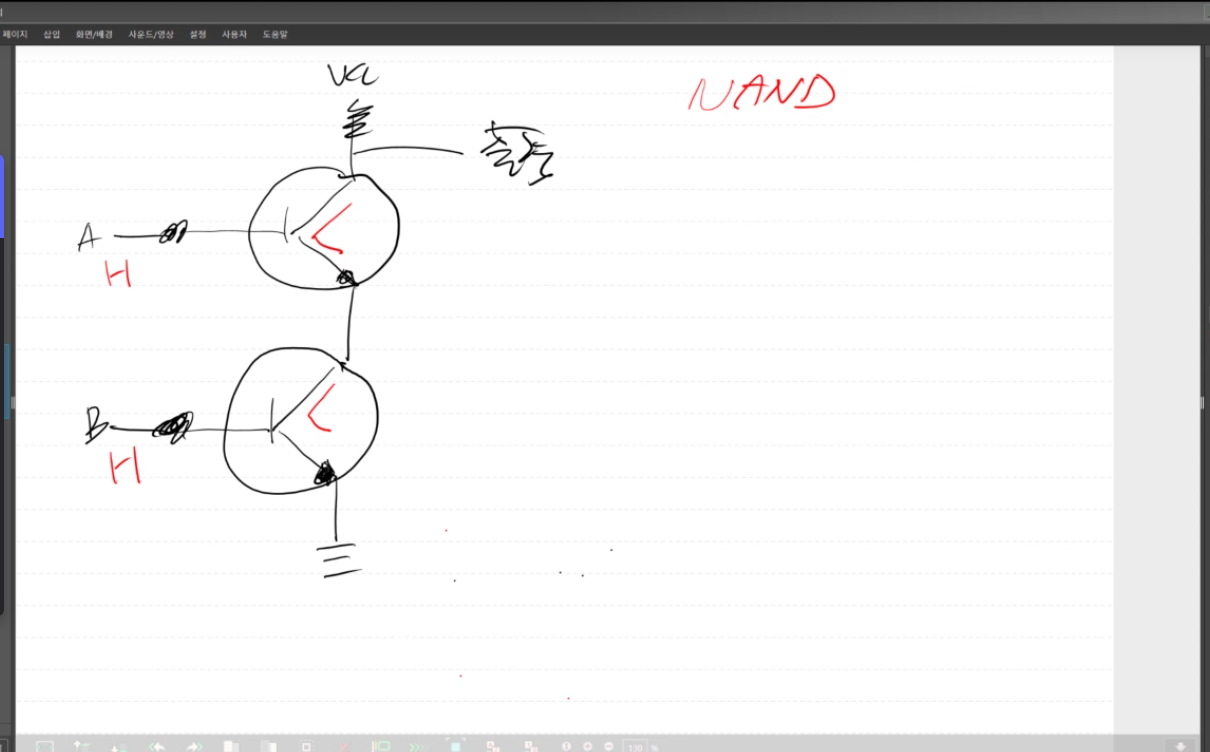 페이지 삽입 화면/배경 사운드/영상 설정 사용자 도움말
VCC
NAND
출력
A
H
B
H
110 %